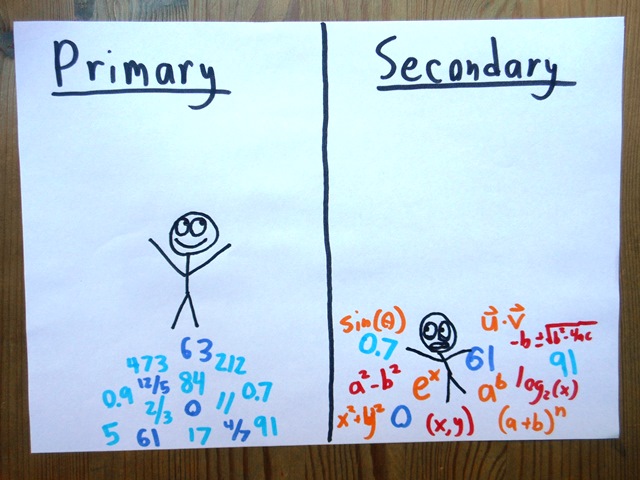 Primary
63
473 212
0.9 12/5 84 0.7
2/3 0 11
5 61 17 4/7 91
Secondary
sin(θ) u⃗·v⃗
0.7 61 -b ± √b²-4ac
91
a²-b² eˣ aᵇ log₂(x)
x²+y² 0 (x,y) (a+b)ⁿ